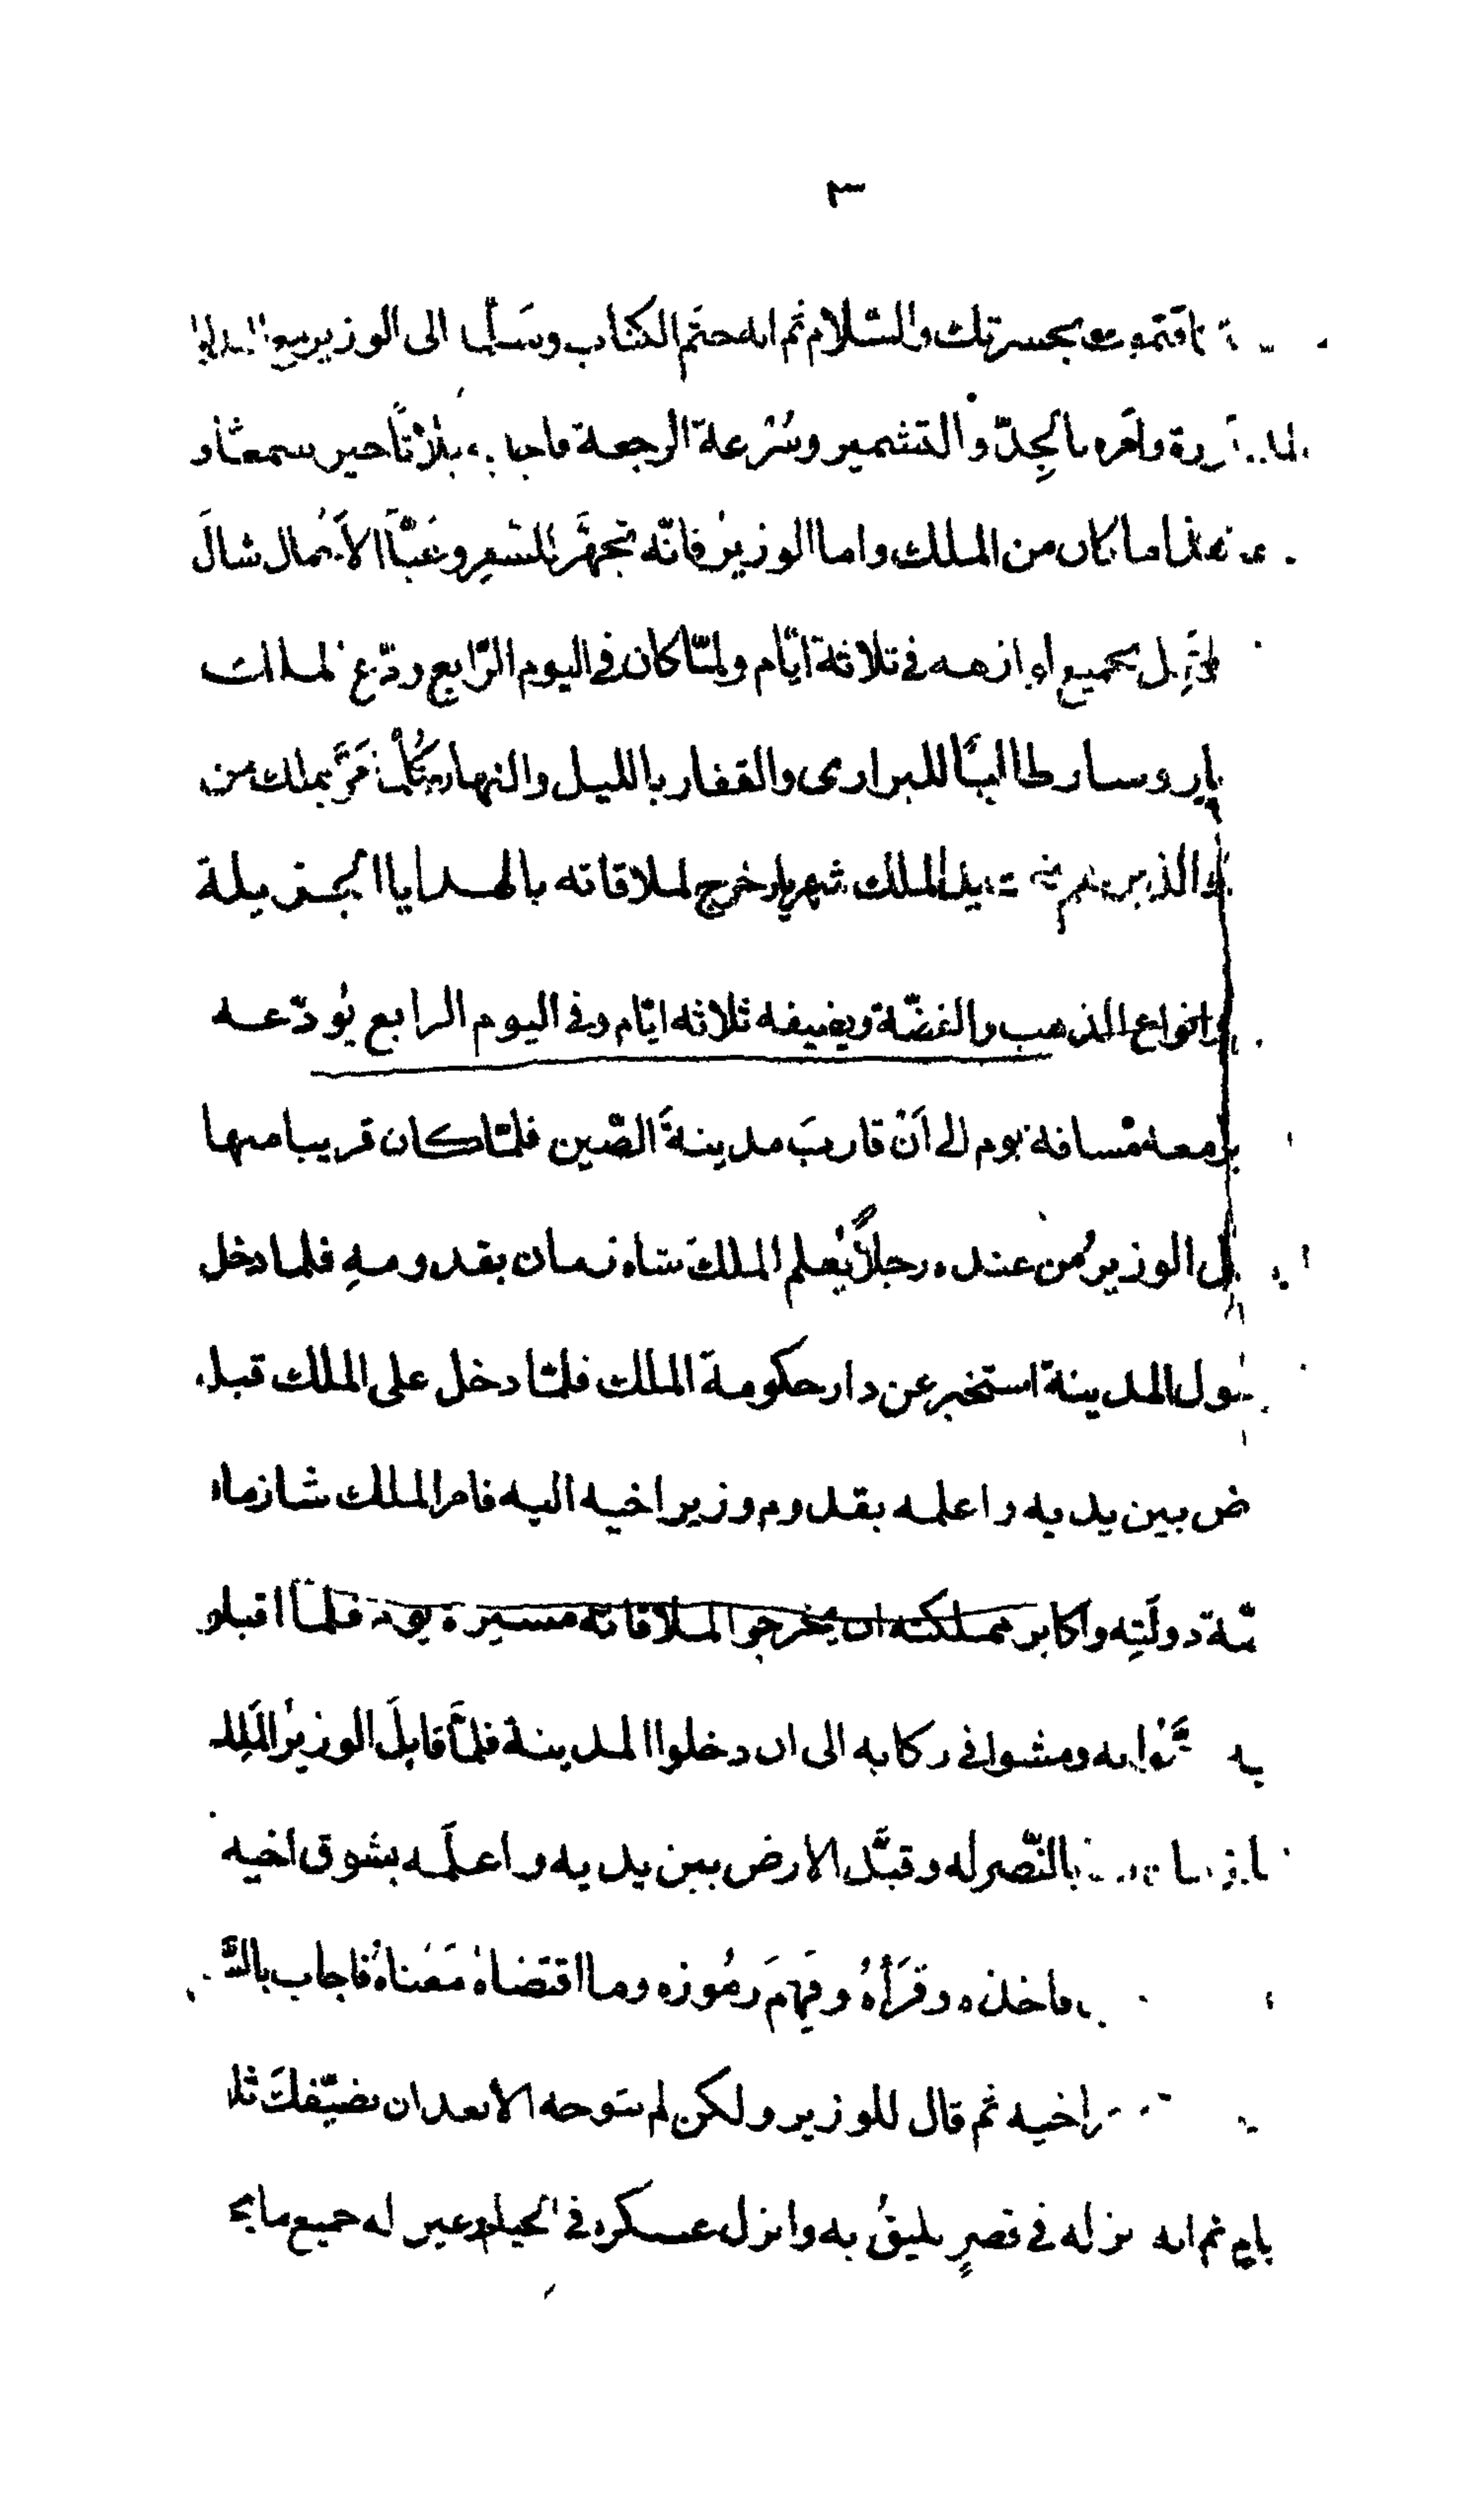 ٣
فتموت بحسرتك والسّلام ثم انه ختم الكتاب وسَلّما الى الوزير
وامَره بالجِدّ والتشمير وسُرْعة الرجعة فاجا بلا تأخير سمعًا و
هذا ما كان من الملك واما الوزيرُ فانّه تجهّز للسفر وعَبّأ الأحمال شالَ
بجميع لوازمه فى ثلاثة ايّام ولمّا كان فى اليوم الرّابع ودّع
وسار طالبًا للبرارى والقفار بالليل والنهار مرّ بملك من
الملك شهريار خرج لملاقاته بالهدايا الجزيلة
وانواع الذهب والفضّة ويضيفه ثلاثه ايّام وفى اليوم الرابع يُودّعه
معه مسافة يوم الى اَنْ قاربَ مدينةَ الصّين فلمّا كان قريبا منها
الوزيرُ من عنده رجلاً يُعلم الملكَ شاه زمان بقدومهِ فلما دخل
المدينة استخبر عن دار حكومة الملك فلمّا دخل على الملك قبل
ض بين يديه واعلمه بقدوم وزير اخيه اليه فامر الملك شازمان
دولَتِه واكابر مملكته ان يخرجوا لملاقاته مسيرة يوم فلمّا اقبلو
ومشوا فى ركابه الى ان دخلوا المدينة فلمّا قابلَ الوزيرُ المَلِك
بالنّصر له وقبّل الارض بين يديه واعلَمه بشوق اخيه
فاخذه وقَرَأهُ وفَهِمَ رمُوزه وما اقتَضاهُ مَعْناهُ فاجاب بالسّ
اخيه ثم قال للوزير ولكن لم نتوجه الا بعد ان نضيّفك ثلا
ثم انه نزله فى قصرٍ يليقُ به وانزل عسكره فى الخيام وعين له جميع ما يح